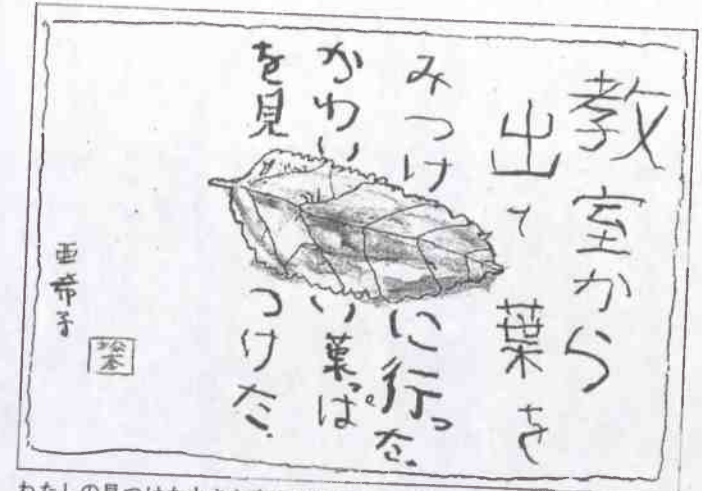 教室から
出て葉を
みつけに行った。
かわいい葉っぱ
を見つけた。
亜希子
松本